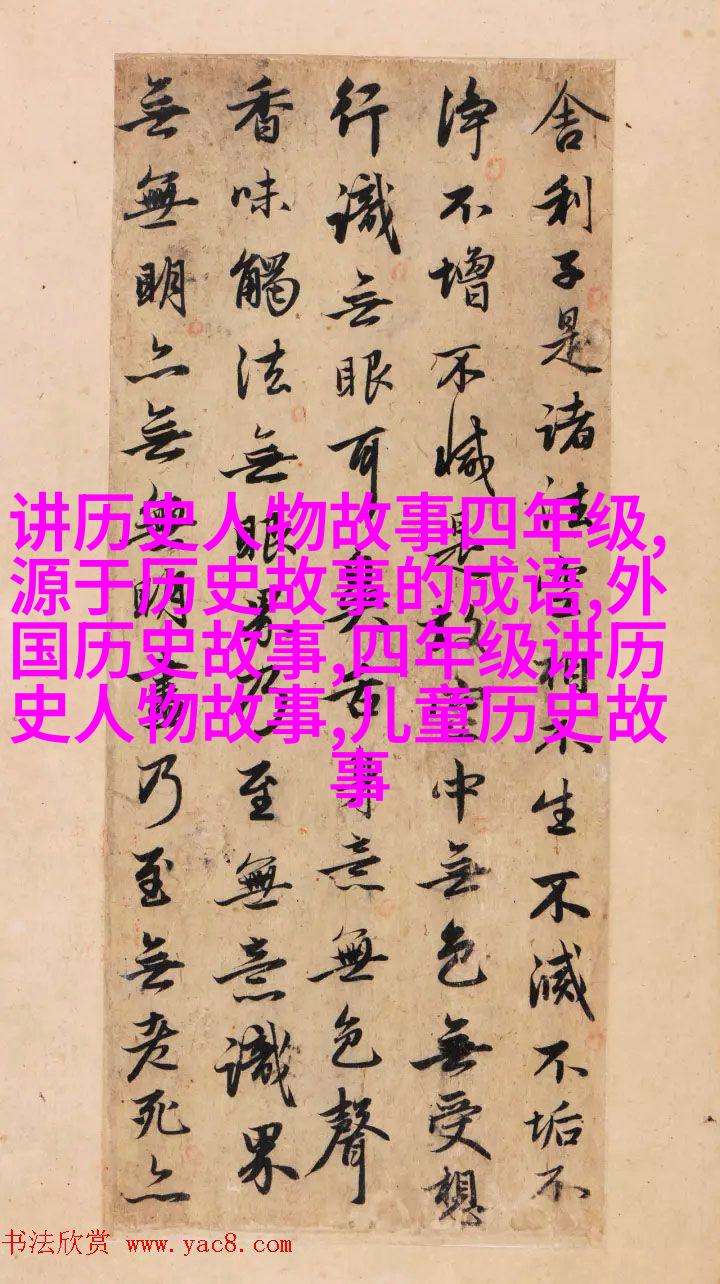 舍利子是諸法空相不生不滅不垢不
淨不增不減是故空中無色無受想
行識無眼耳鼻舌身意無色聲
香味觸法無眼界乃至無意識界
無無明亦無無明盡乃至無老死亦
讲历史人物故事四年级,
源于历史故事的成语,外
国历史故事,四年级讲历
史人物故事,儿童历史故
事
书法欣赏 www.yac8.com